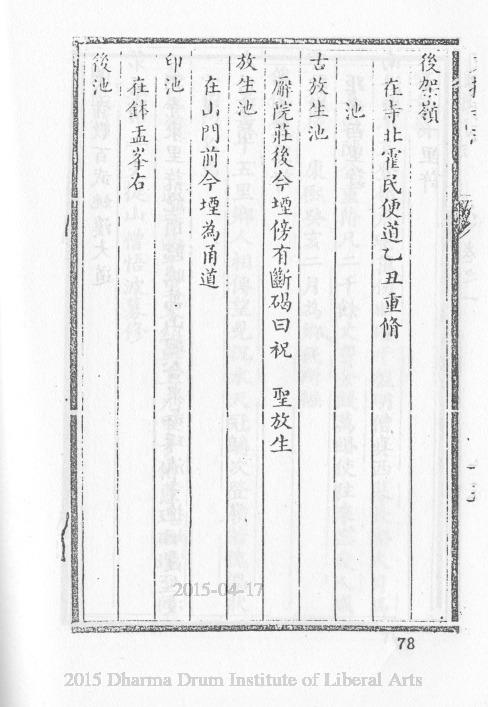 後架嶺
在寺北霍民便道乙丑重脩
池
古放生池
廨院莊後今堙傍有斷碣曰祝　聖放生
放生池
在山門前今堙為甬道
印池
在鉢盂峯右
後池
78
2015-04-17
2015 Dharma Drum Institute of Liberal Arts